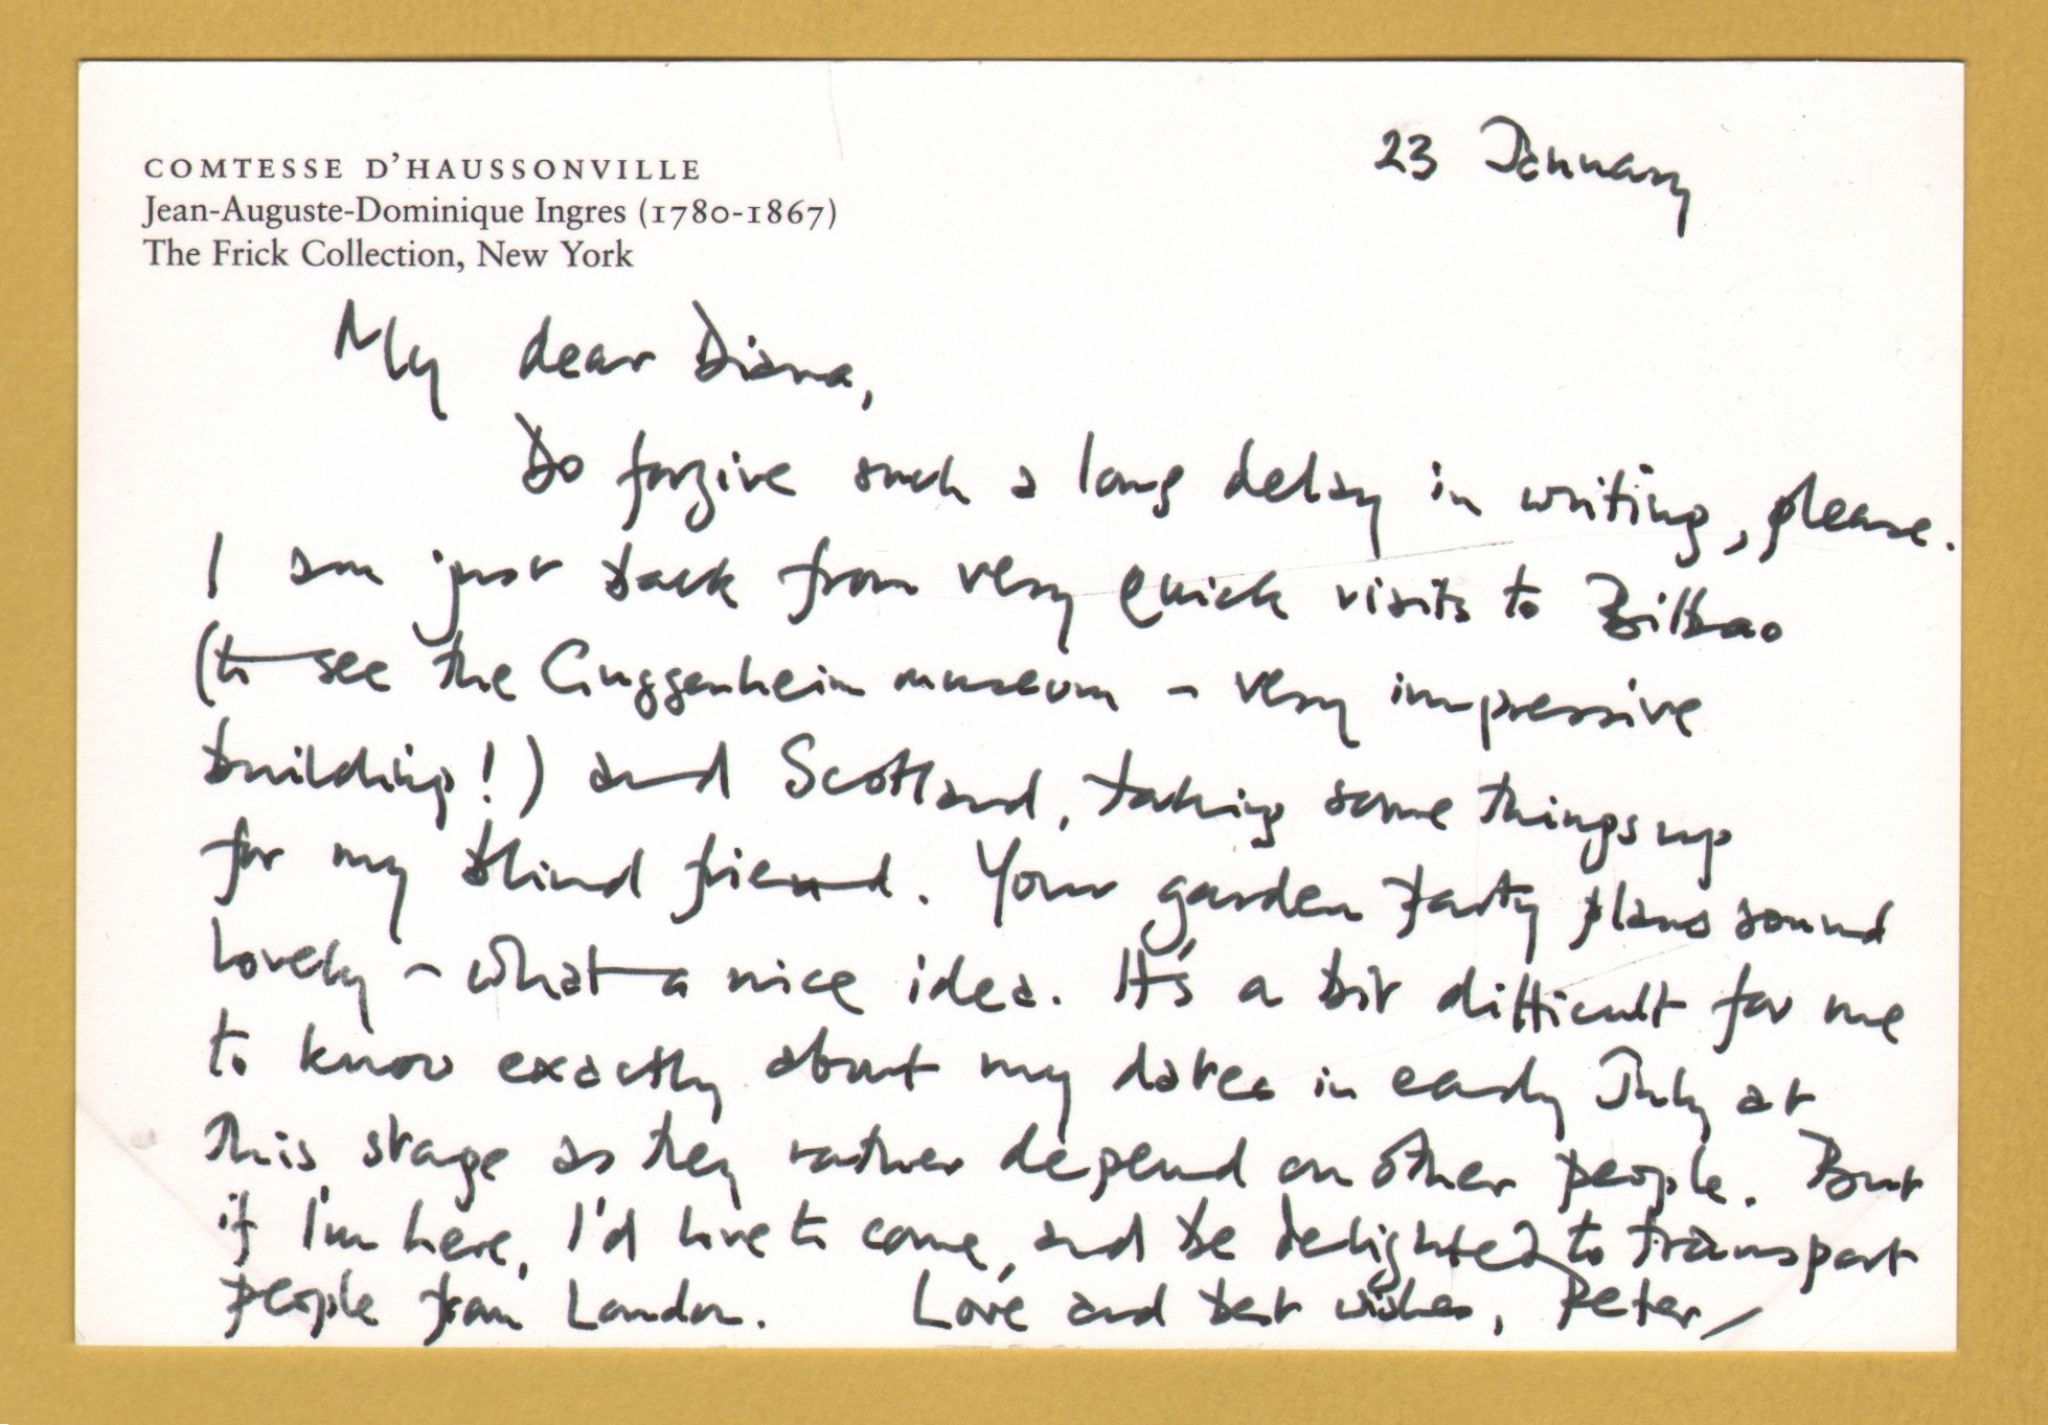 COMTESSE D'HAUSSONVILLE
Jean-Auguste-Dominique Ingres (1780-1867)
The Frick Collection, New York
23 January
My dear Diana,
Do forgive such a long delay in writing, please.
I am just back from very quick visits to Bilbao
(to see the Guggenheim museum - very impressive
building!) and Scotland, taking some things up
for my blind friend. Your garden party plans sound
lovely - what a nice idea. It's a bit difficult for me
to know exactly about my dates in early July at
this stage as they rather depend on other people. But
if I'm here, I'd love to come, and be delighted to transport
people from London. Love and best wishes, Peter